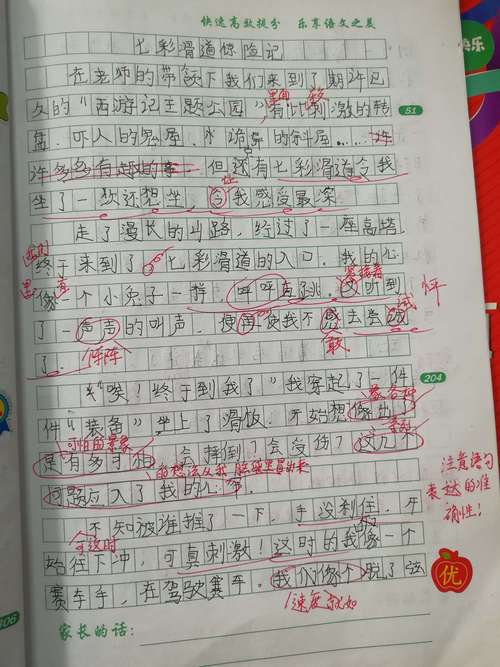 快速高效提分 乐享语文之美
七彩滑道惊险记
在老师的带领下我们来到了期许已
久的“西游记主题公园”有比刺激的转
盘、吓人的鬼屋、诡异的科屋……许
51
许多多有趣的事 但还有七彩滑道令我
坐了一次还想坐，令我感受最深
走了漫长的山路，经过了一座高塔
终于来到了 七彩滑道的入口，我的心
像一个小兔子一样，呼呼直跳，又听到
了一声声的叫声，使我不 去尝试
了。 阵阵 敢
204
“唉！终于到我了”我穿起了一件
件“装备”坐上了滑板，开始想像出了
可怕的景象
是有多可怕 会摔倒？会受伤？这几个
问题应入了我的心中。
注意语句
表达的准
确性！
不知被谁推了一下，手没刹住，开
这时
始往下冲，可真刺激！这时的我像一个
优
赛车手，在驾驶赛车。我们像个脱了弦
速度就如
106
家长的话：